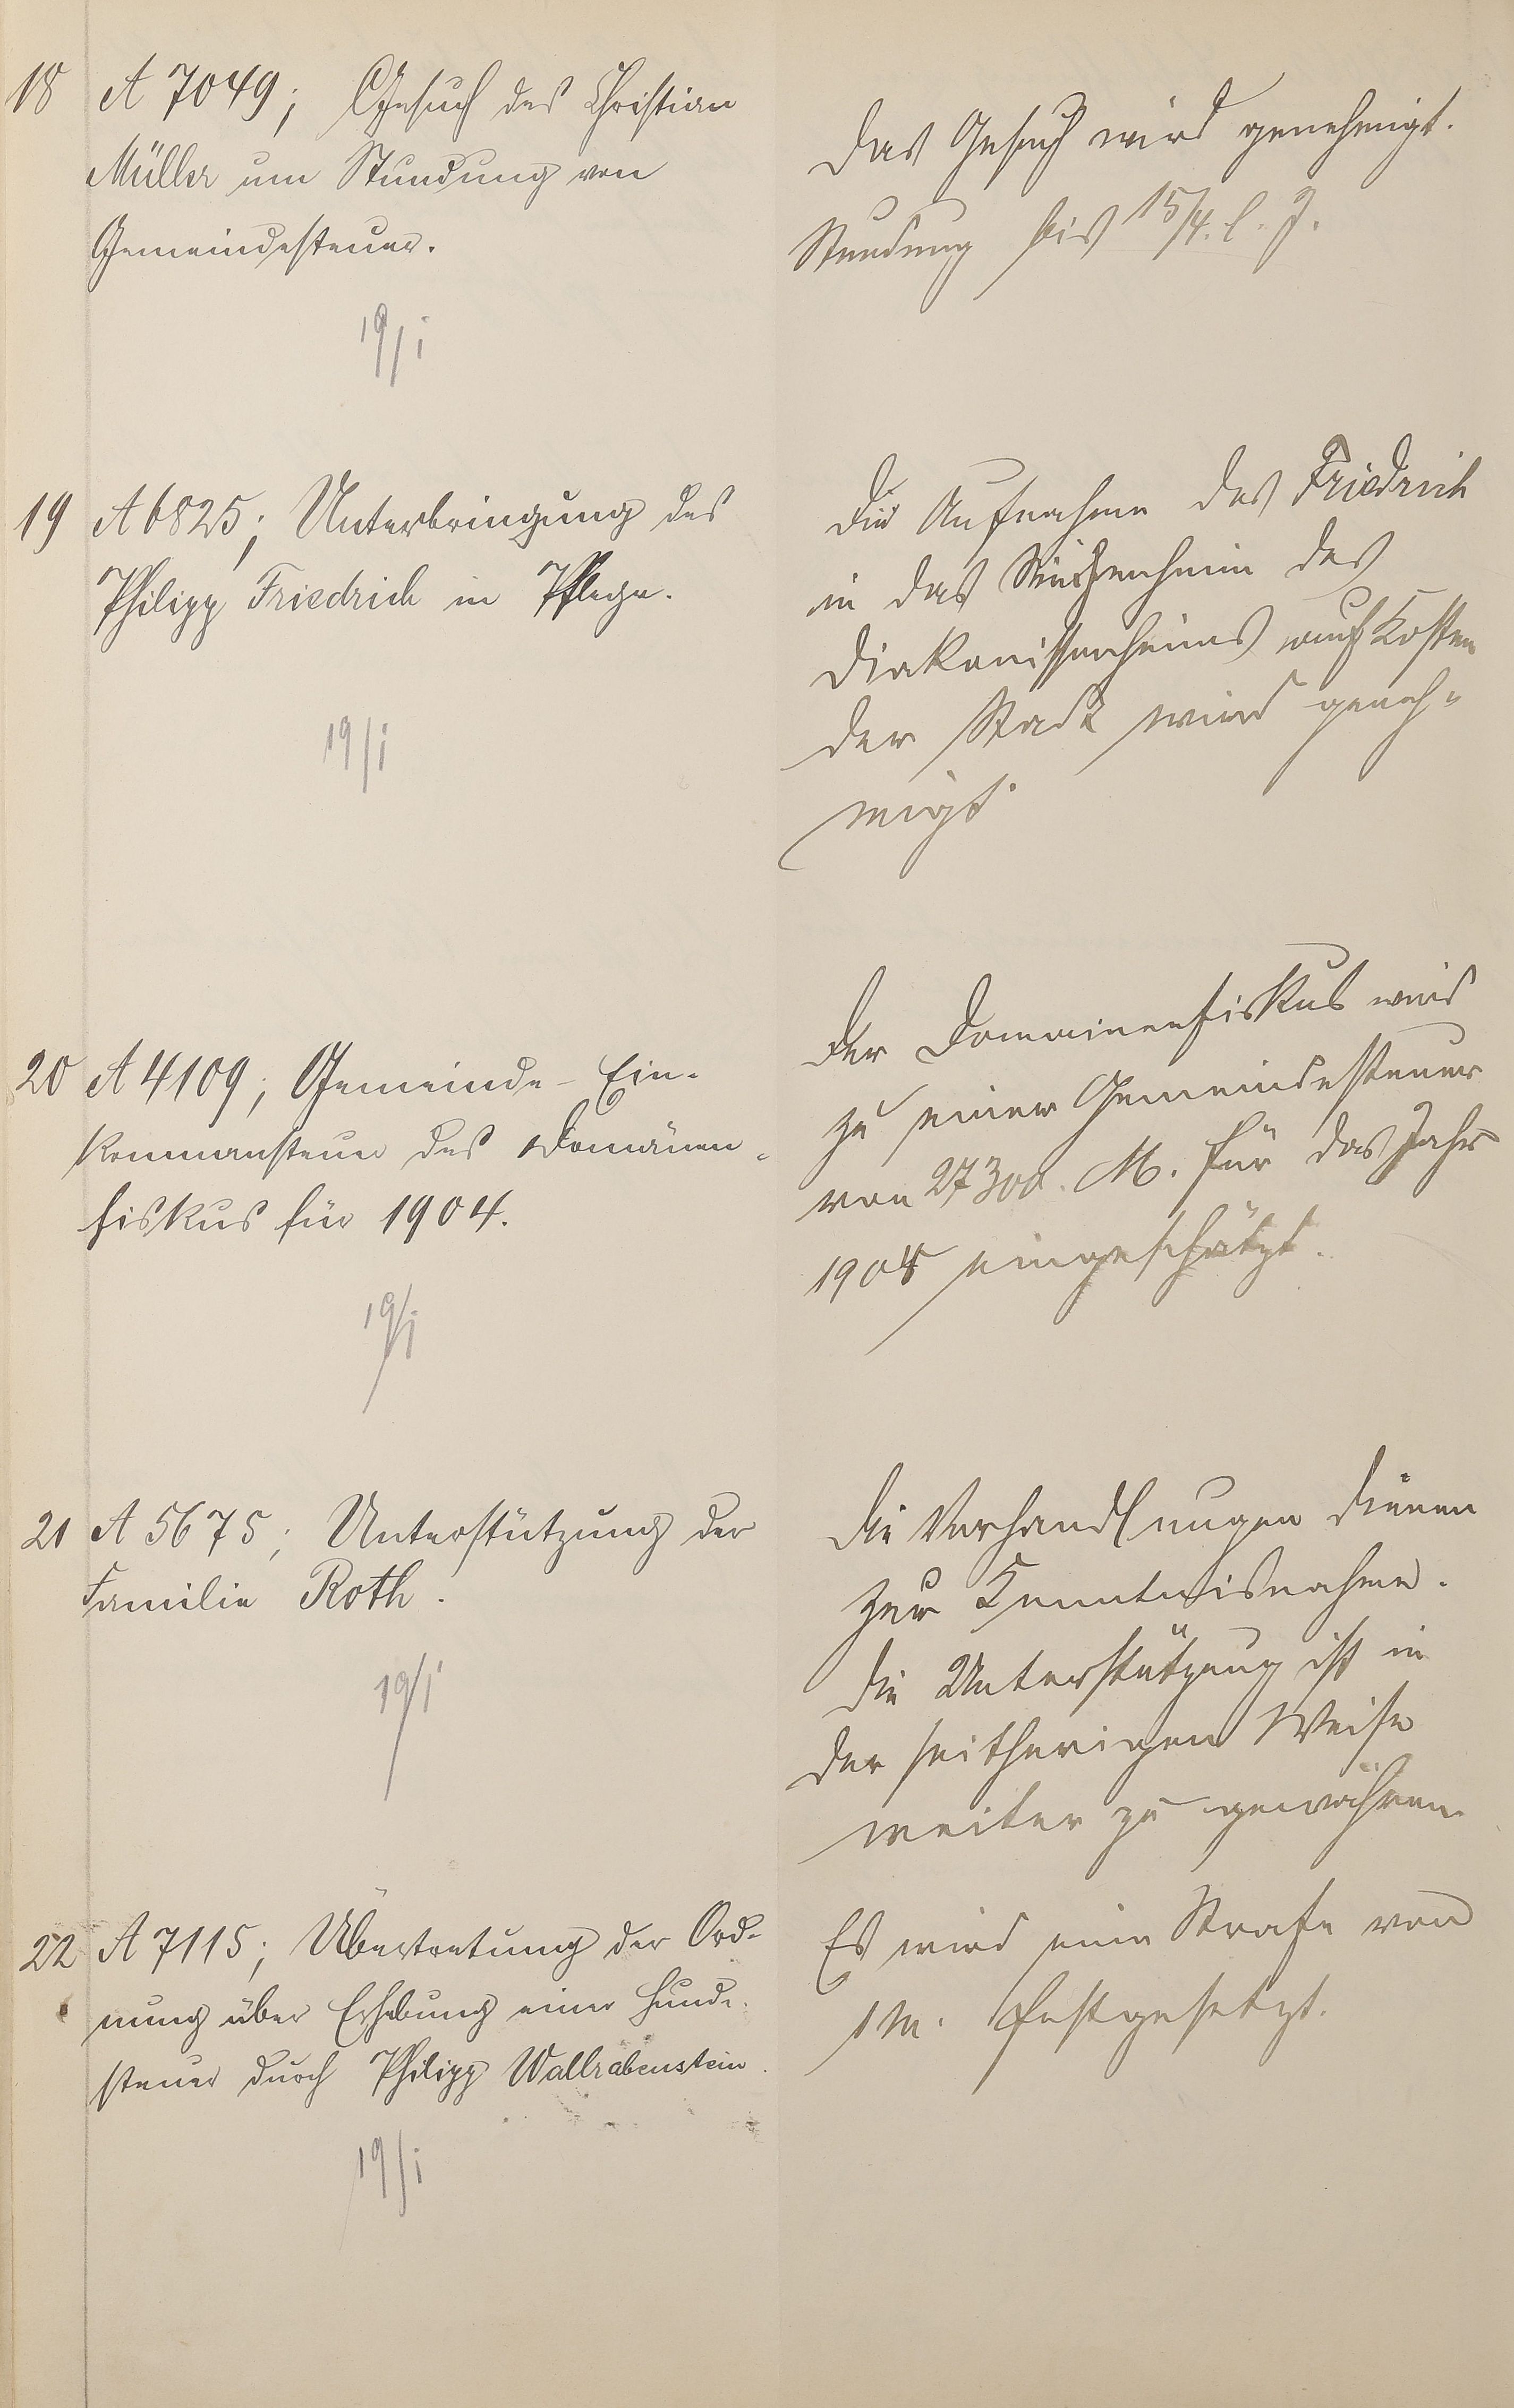 18 A 7049; Gesuch des Christian
Müller um Stundung von
Gemeindesteuer.
19/I
Das Gesuch wird genehmigt.
Stundung bis 15/4. l. J.
19 A 6825; Unterbringung des
Philipp Friedrich in Pflege.
19/I
Die Aufnahme des Friedrich
in das Siechenheim des
Diakonissenheims auf Kosten
der Stadt wird geneh=
migt.
20 A 4109; Gemeinde-Ein-
kommensteuer des Domänen-
fiskus für 1904.
19/I
Der Domainenfiskus wird
zu einer Gemeindesteuer
von 27300. M. für das Jahr
1904 eingeschätzt.
21 A 5675; Unterstützung der
Familie Roth.
19/I
Die Verhandlungen dienen
zur Kenntnisnahme.
Die Unterstützung ist in
der seitherigen Weise
weiter zu gewähren.
22 A 7115; Übertretung der Ord-
nung über Erhebung einer Hunde-
steuer durch Philipp Wallrabenstein.
19/I
Es wird eine Strafe von
1 M. festgesetzt.